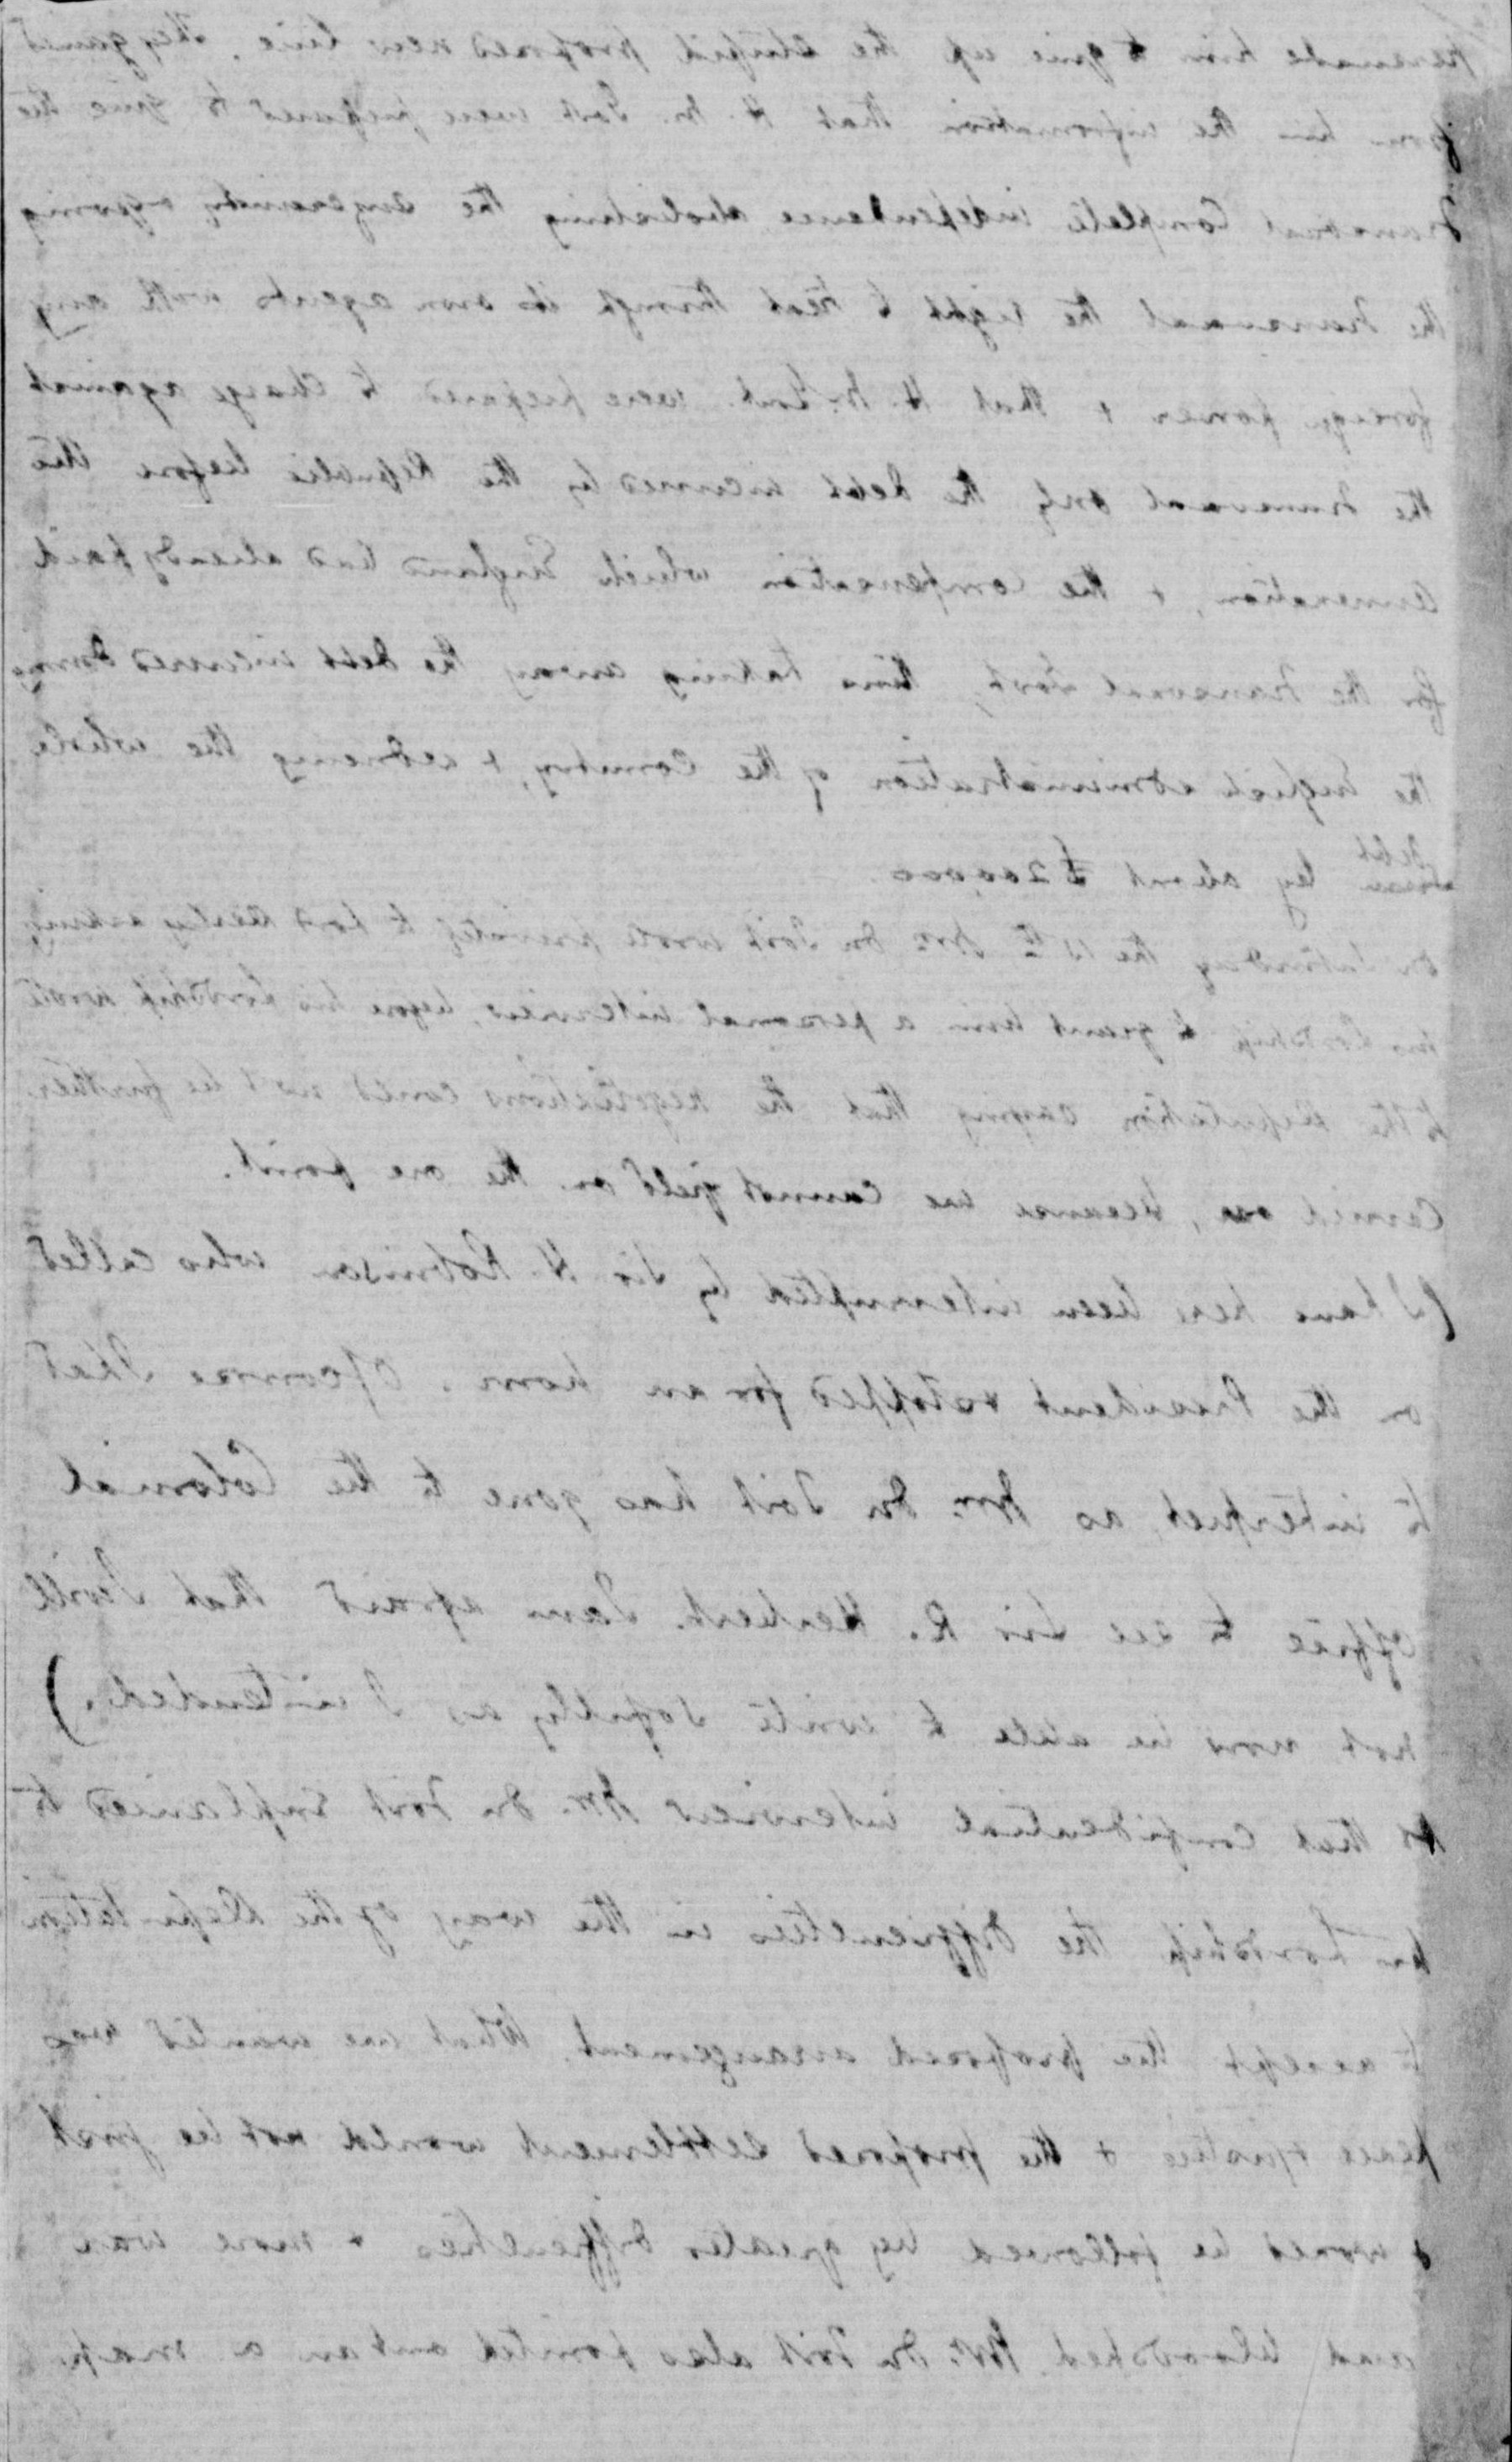 persuade him to give up the stupid proposed new line. They gained
from him the information that H. M. Govt were prepared to give the
Transvaal complete independence abolishing the suzerainty & giving
the Transvaal the right to treat through its own agents with any
foreign power & that H. M. Govt. were prepared to charge against
the Transvaal only the debt incurred by the Republic before the
annexation, & the compensation which England had already paid
for the Transvaal Govt, thus taking away the debt incurred during
the English administration of the country, & reducing the whole
debt by about £200,000.
On Saturday the 15th Mr. Du Toit wrote privately to Lord Derby asking
his Lordship to grant him a personal interview, before his Lordship wrote
to the Deputation saying that the negotiations could not be further
carried on, because we cannot yield on the one point.
(I have here been interrupted by Sir H. Robinson who called
on the President & stopped for an hour. Of course I had
to interpret, as Mr. Du Toit has gone to the Colonial
Office to see Sir R. Herbert. I am afraid that I will
not now be able to write so fully as I intended.)
At that confidential interview Mr. Du Toit explained to
his Lordship the difficulties in the way of the Deputation
to accept the proposed arrangement. What we wanted was
peace & justice & the proposed settlement would not be just
& would be followed by greater difficulties & more war
and bloodshed. Mr. Du Toit also pointed out on a map